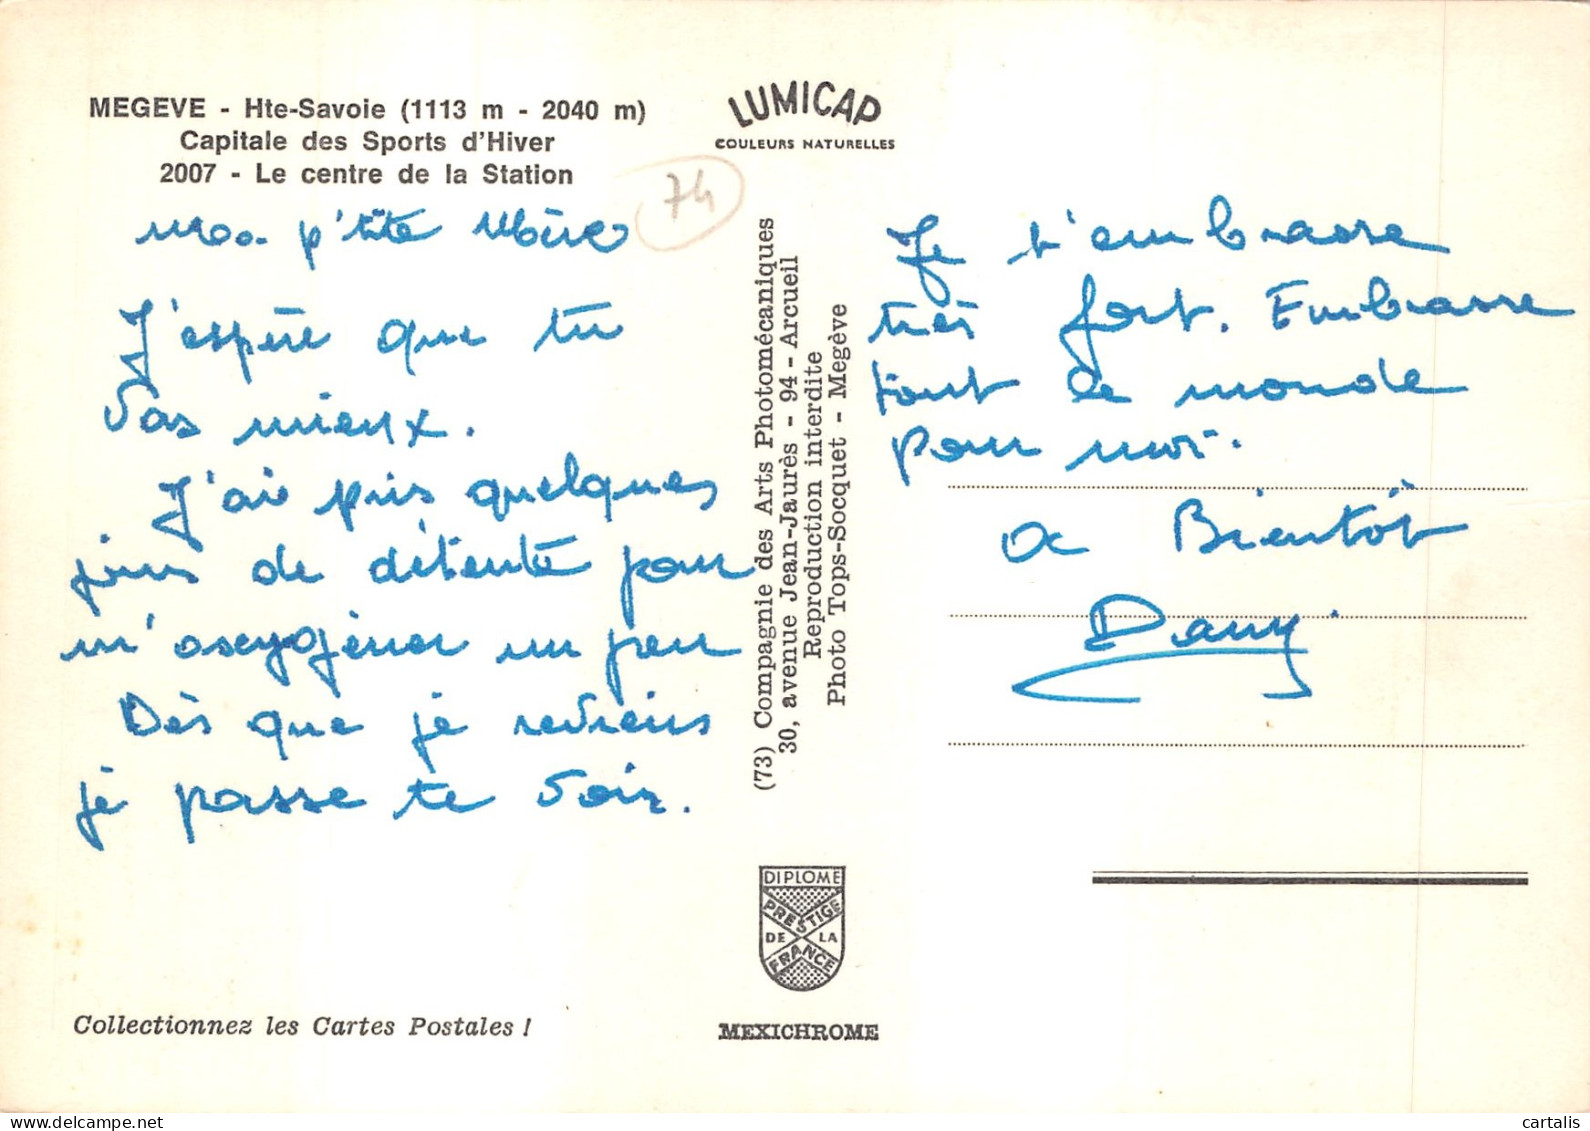 MEGEVE - Hte-Savoie (1113 m - 2040 m)
Capitale des Sports d'Hiver
2007 - Le centre de la Station
LUMICAP
COULEURS NATURELLES
74
Ma p'tite Mère
J'espère que tu
vas mieux.
J'ai pris quelques
jours de détente pour
m'oxygéner un peu
Dès que je reviens
je passe te voir.
(73) Compagnie des Arts Photomécaniques
30, avenue Jean-Jaurès - 94 - Arcueil
Reproduction interdite
Photo Tops-Socquet - Megève
Je t'embrasse
très fort. Embrasse
tout le monde
pour moi.
a Bientôt
Dany
DIPLOME
PRESTIGE
DE LA
FRANCE
Collectionnez les Cartes Postales !
MEXICHROME
cartalis